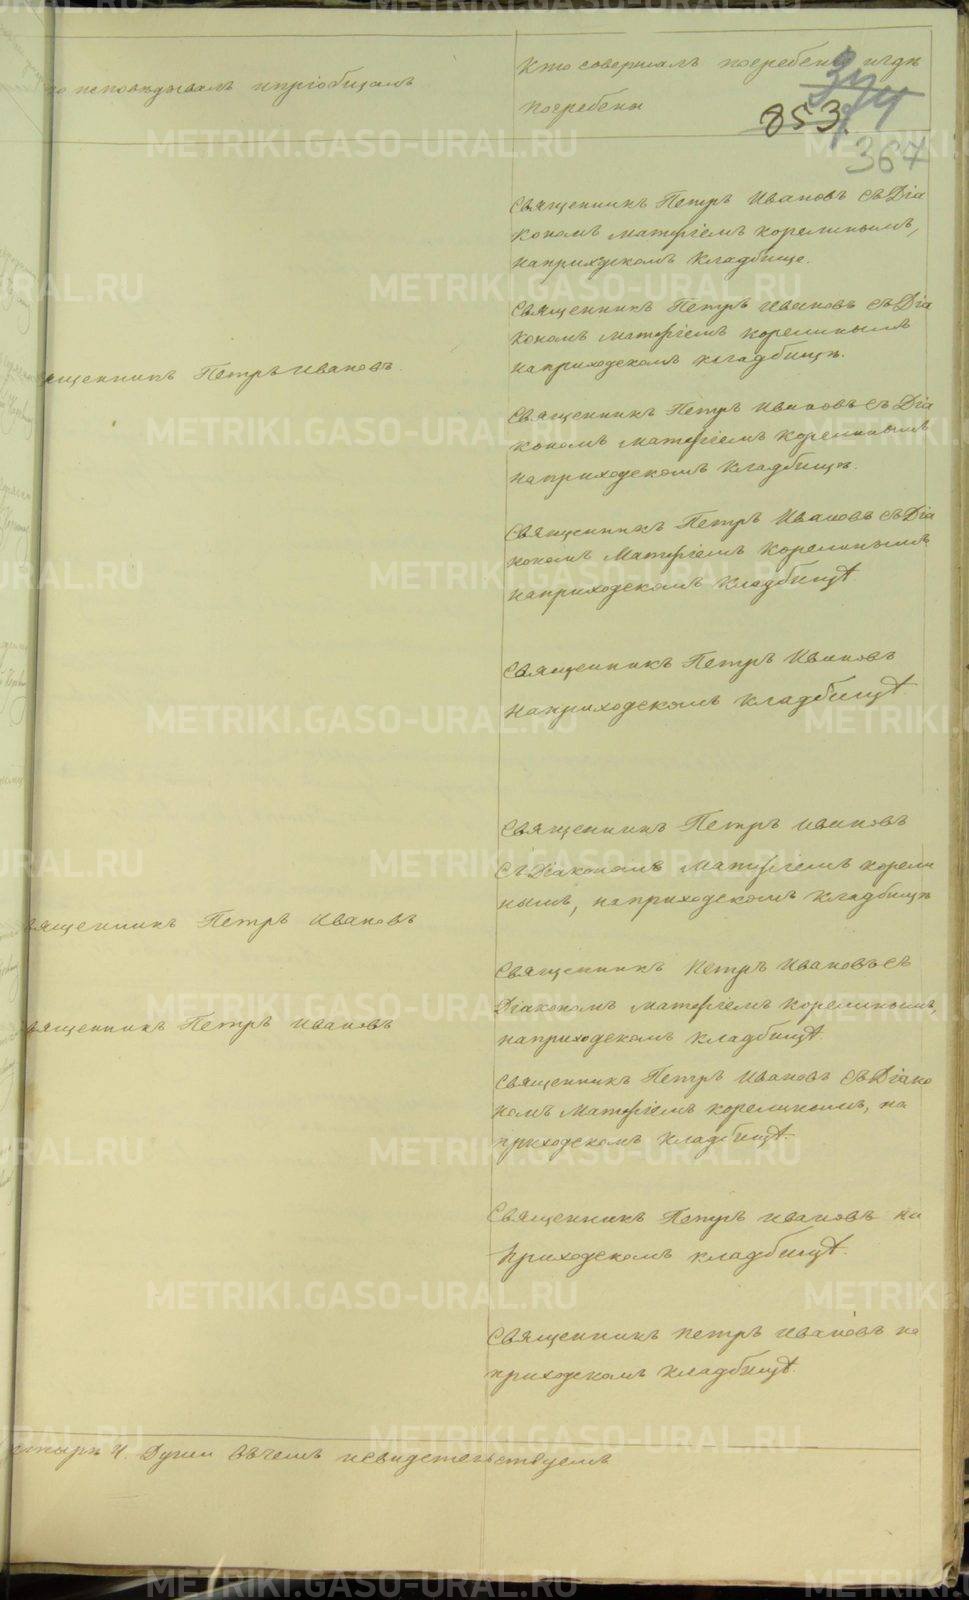 исповѣдывалъ и пріобщалъ
Кто совершалъ погребеніе и гдѣ
погребены
374
853.
367
Священникъ Петръ Ивановъ съ Діа
кономъ Матѳіемъ Корелинымъ,
на приходскомъ кладбище.
Священникъ Петръ Ивановъ съ Діа
кономъ Матѳіемъ Корелинымъ
на приходскомъ кладбищѣ.
ященникъ Петръ Ивановъ.
Священникъ Петръ Ивановъ съ Діа
кономъ Матѳіемъ Корелинымъ
на приходскомъ кладбищѣ.
Священникъ Петръ Ивановъ съ Діа
кономъ Матѳіемъ Корелинымъ
на приходскомъ кладбищѣ
Священникъ Петръ Ивановъ
на приходскомъ кладбищѣ
Священникъ Петръ Ивановъ
съ Діакономъ Матѳіемъ Корели
нымъ, на приходскомъ кладбищѣ
вященникъ Петръ Ивановъ
Священникъ Петръ Ивановъ съ
Діакономъ Матѳіемъ Корелинымъ,
на приходскомъ кладбищѣ.
вященникъ Петръ Ивановъ
Священникъ Петръ Ивановъ съ Діако
номъ Матѳіемъ Корелинымъ, на
приходскомъ кладбищѣ.
Священникъ Петръ Ивановъ на
приходскомъ кладбищѣ.
Священникъ Петръ Ивановъ на
приходскомъ кладбищѣ.
етыре 4. Души въ чемъ и свидетельствуемъ
METRIKI.GASO-URAL.RU